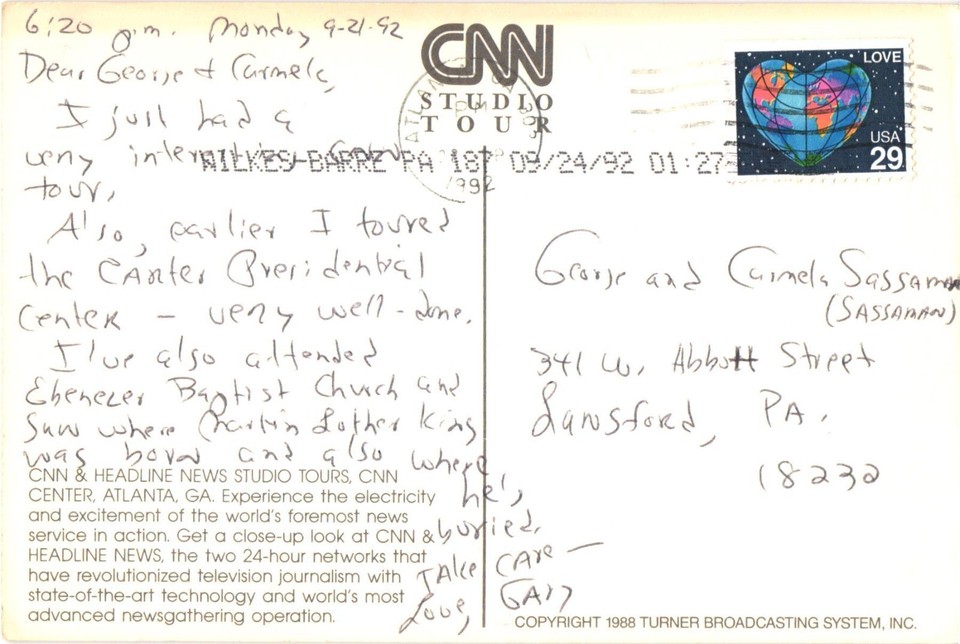 6:20 p.m. Monday 9-21-92
Dear George & Carmela,
I just had a
very
tour.
Also, earlier I toured
the Carter Presidential
Center - very well-done.
I've also attended
Ebenezer Baptist Church and
saw where Martin Luther King
was born and also where
he's
buried.
Take care —
Love, Gary
CNN
STUDIO
TOUR
WILKES-BARRE PA 187 09/24/92 01:27
1992
LOVE
USA
29
George and Carmela Sassaman
(SASSAMAN)
341 W. Abbott Street
Lansford, PA.
18232
CNN & HEADLINE NEWS STUDIO TOURS, CNN
CENTER, ATLANTA, GA. Experience the electricity
and excitement of the world's foremost news
service in action. Get a close-up look at CNN &
HEADLINE NEWS, the two 24-hour networks that
have revolutionized television journalism with
state-of-the-art technology and world's most
advanced newsgathering operation.
COPYRIGHT 1988 TURNER BROADCASTING SYSTEM, INC.